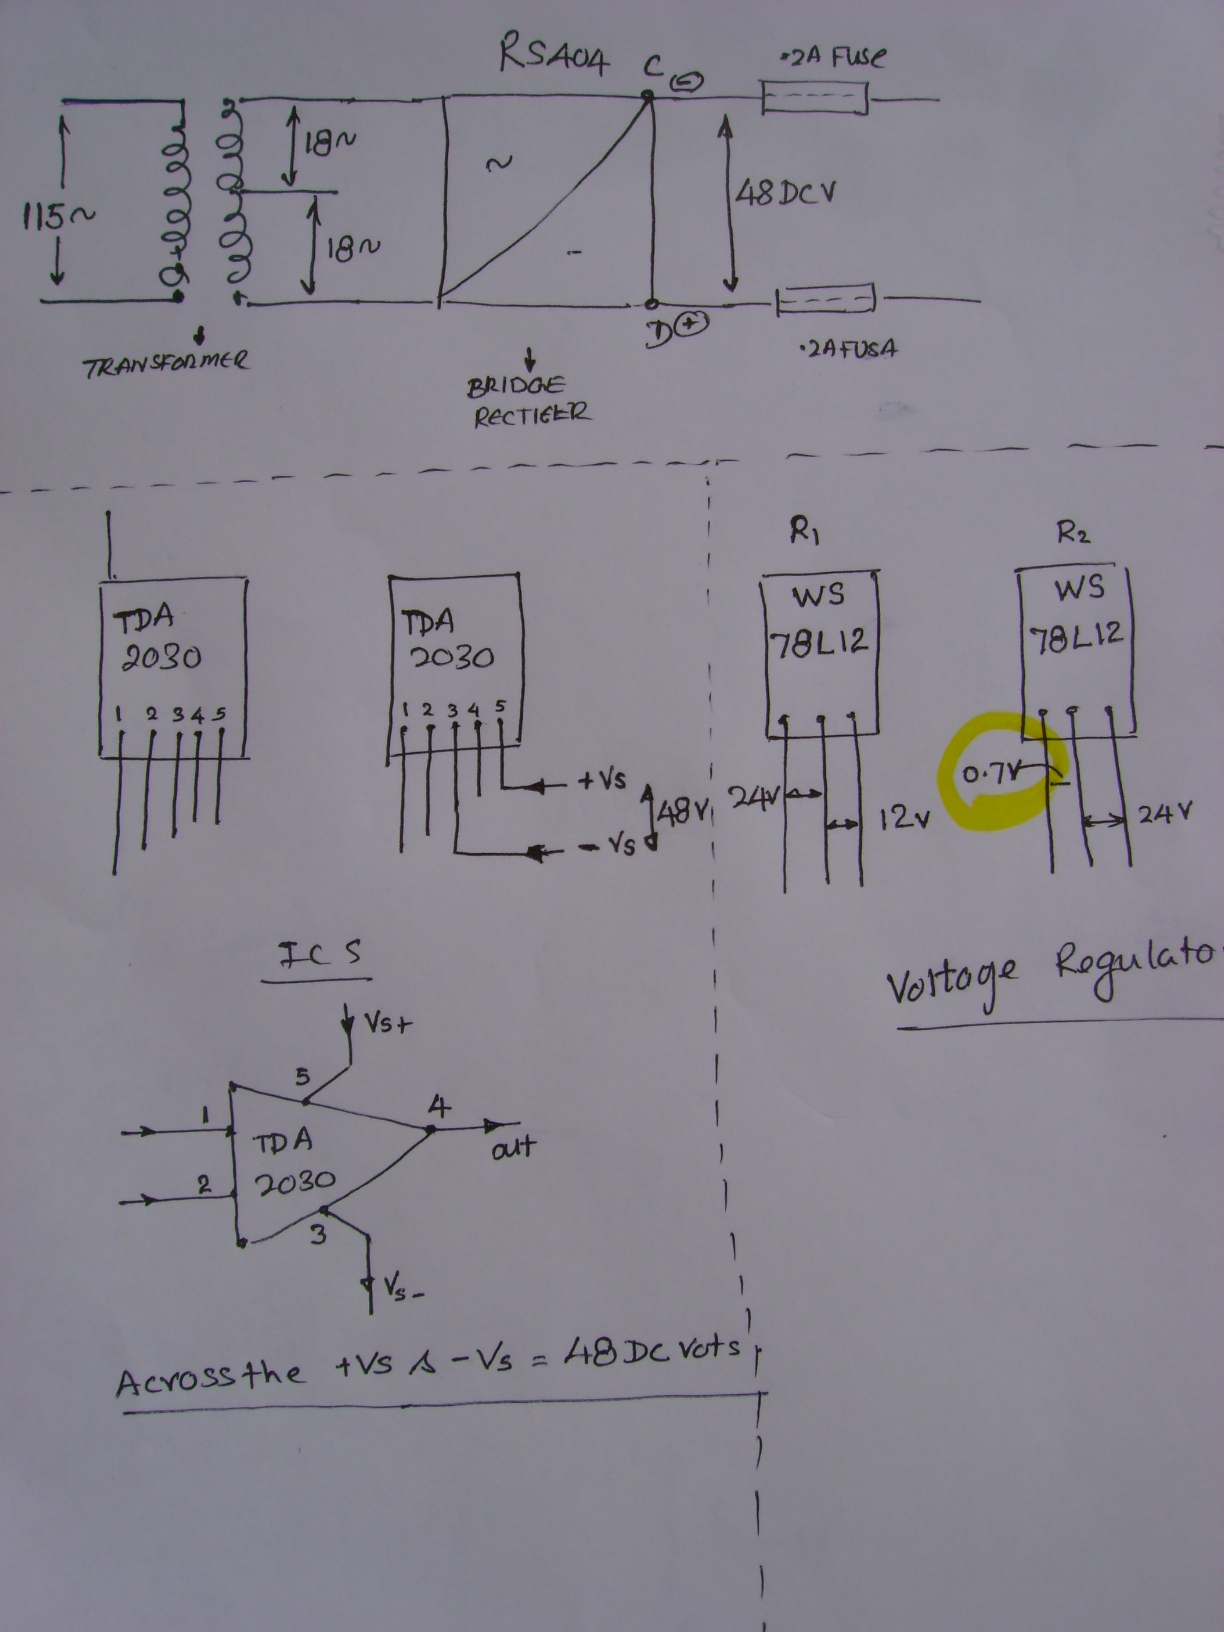 RS404
C ⊖
.2A FUSE
18~
115~
18~
~
-
48DCV
D ⊕
.2AFUSA
TRANSFORMER
BRIDGE
RECTIFER
R1
R2
TDA
2030
1 2 3 4 5
TDA
2030
1 2 3 4 5
+Vs
48V
-Vs
WS
78L12
24V
12V
WS
78L12
0.7V
24V
ICS
Voltage Regulato
Vs+
5
1
TDA
2030
2
4
out
3
Vs-
Across the +Vs & -Vs = 48 DC Vots